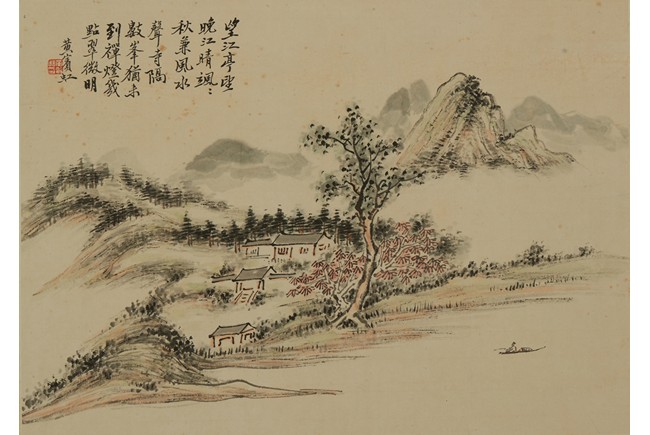 望江亭望
晚江晴颯〻
秋兼風水
聲寺隔
數峯猶未
到禪燈幾
點翠微明
黃賓虹